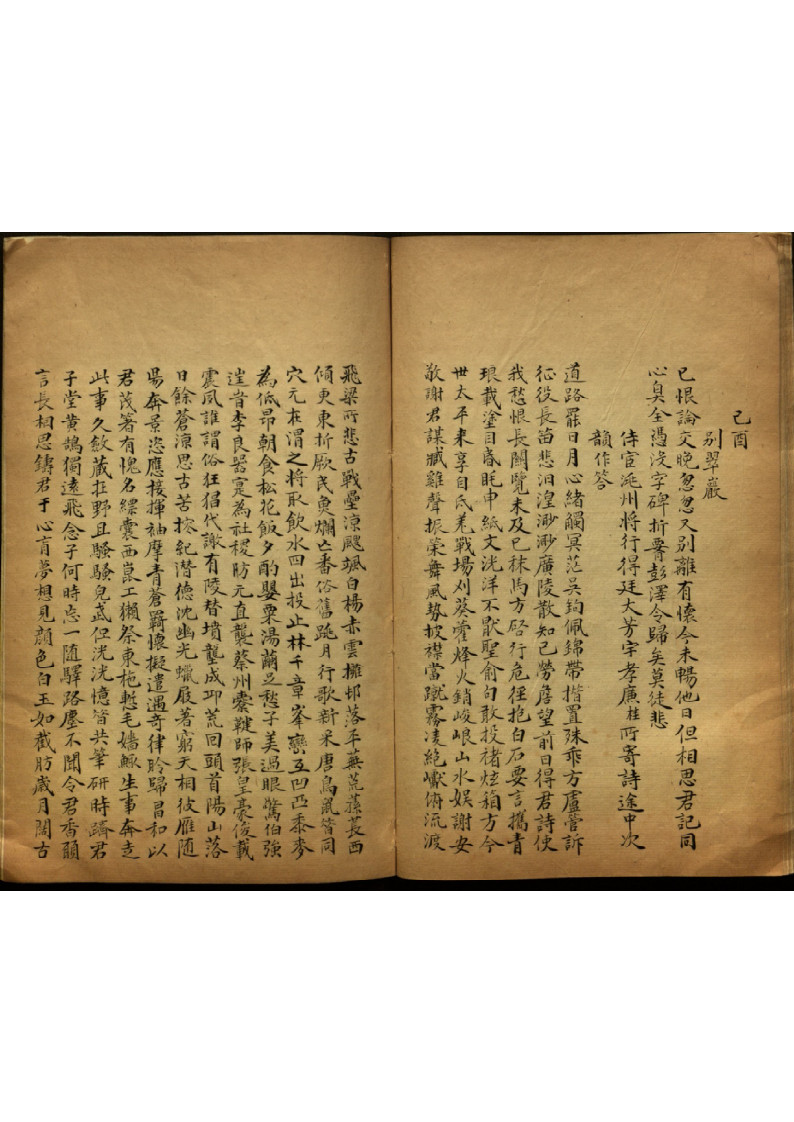 己酉
別翠巖
已恨論文晚忽忽又別離有懷今未暢他日但相思君記同
心臭全憑沒字碑折腰彭澤令歸矣莫徒悲
侍宦洮州將行得廷大芳宇孝廉桂所寄詩途中次
韻作答
道路罷日月心緒觸冥茫吳鉤佩錦帶揩置殊乖方廬管訴
征役長笛悲汨湟渺渺廣陵散知己勞詹望前日得君詩使
我愁恨長闊覽未及已秣馬方啓行危徑抱白石要言攜青
琅載塗目昏眊申紙文洸洋不猒聖俞句敢投禇炫箱方今
世太平來享自氐羌戰場刈葵藿烽火銷峻峎山水娛謝安
敬謝君謀臧雞聲振榮舞風勢披襟當蹴霧凌絕巘俯流渡
飛梁所悲古戰壘涼颸颯白楊赤雲擁邨落平蕪荒蓀萇西
傾更東折厥民奧爛亡番俗舊跳月行歌新采唐鳥鼠皆同
穴元在渭之將取飲水四出投止林千章峯巒互凹凸黍麥
為低昂朝食松花飯夕酌罌粟湯繭足愁子美過眼驚伯強
逬音李良器寔為社稷防元直襲蔡州櫜鞬師張皇豪俊載
震風誰謂俗狂猖代謝有陵替墳壟成邛荒回頭首陽山落
日餘蒼涼思古苦搽紀潛德沈幽光蠟屐著窮天相彼雁隨
陽奔景恣應接揮袖摩青蒼羈懷擬遣遇奇律聆歸昌和以
君茂箸有愧名縹囊西崑工獺祭東施慙毛嬙觚生事奔走
此事久斂藏狂野且騷騷兒惑但洸洸憶昔共筆研時躋君
子堂黃鵠獨遠飛念子何時忘一隨驛路塵不聞令君香願
言長相思鑄君于心肓夢想見顏色白玉如截肪歲月闊古